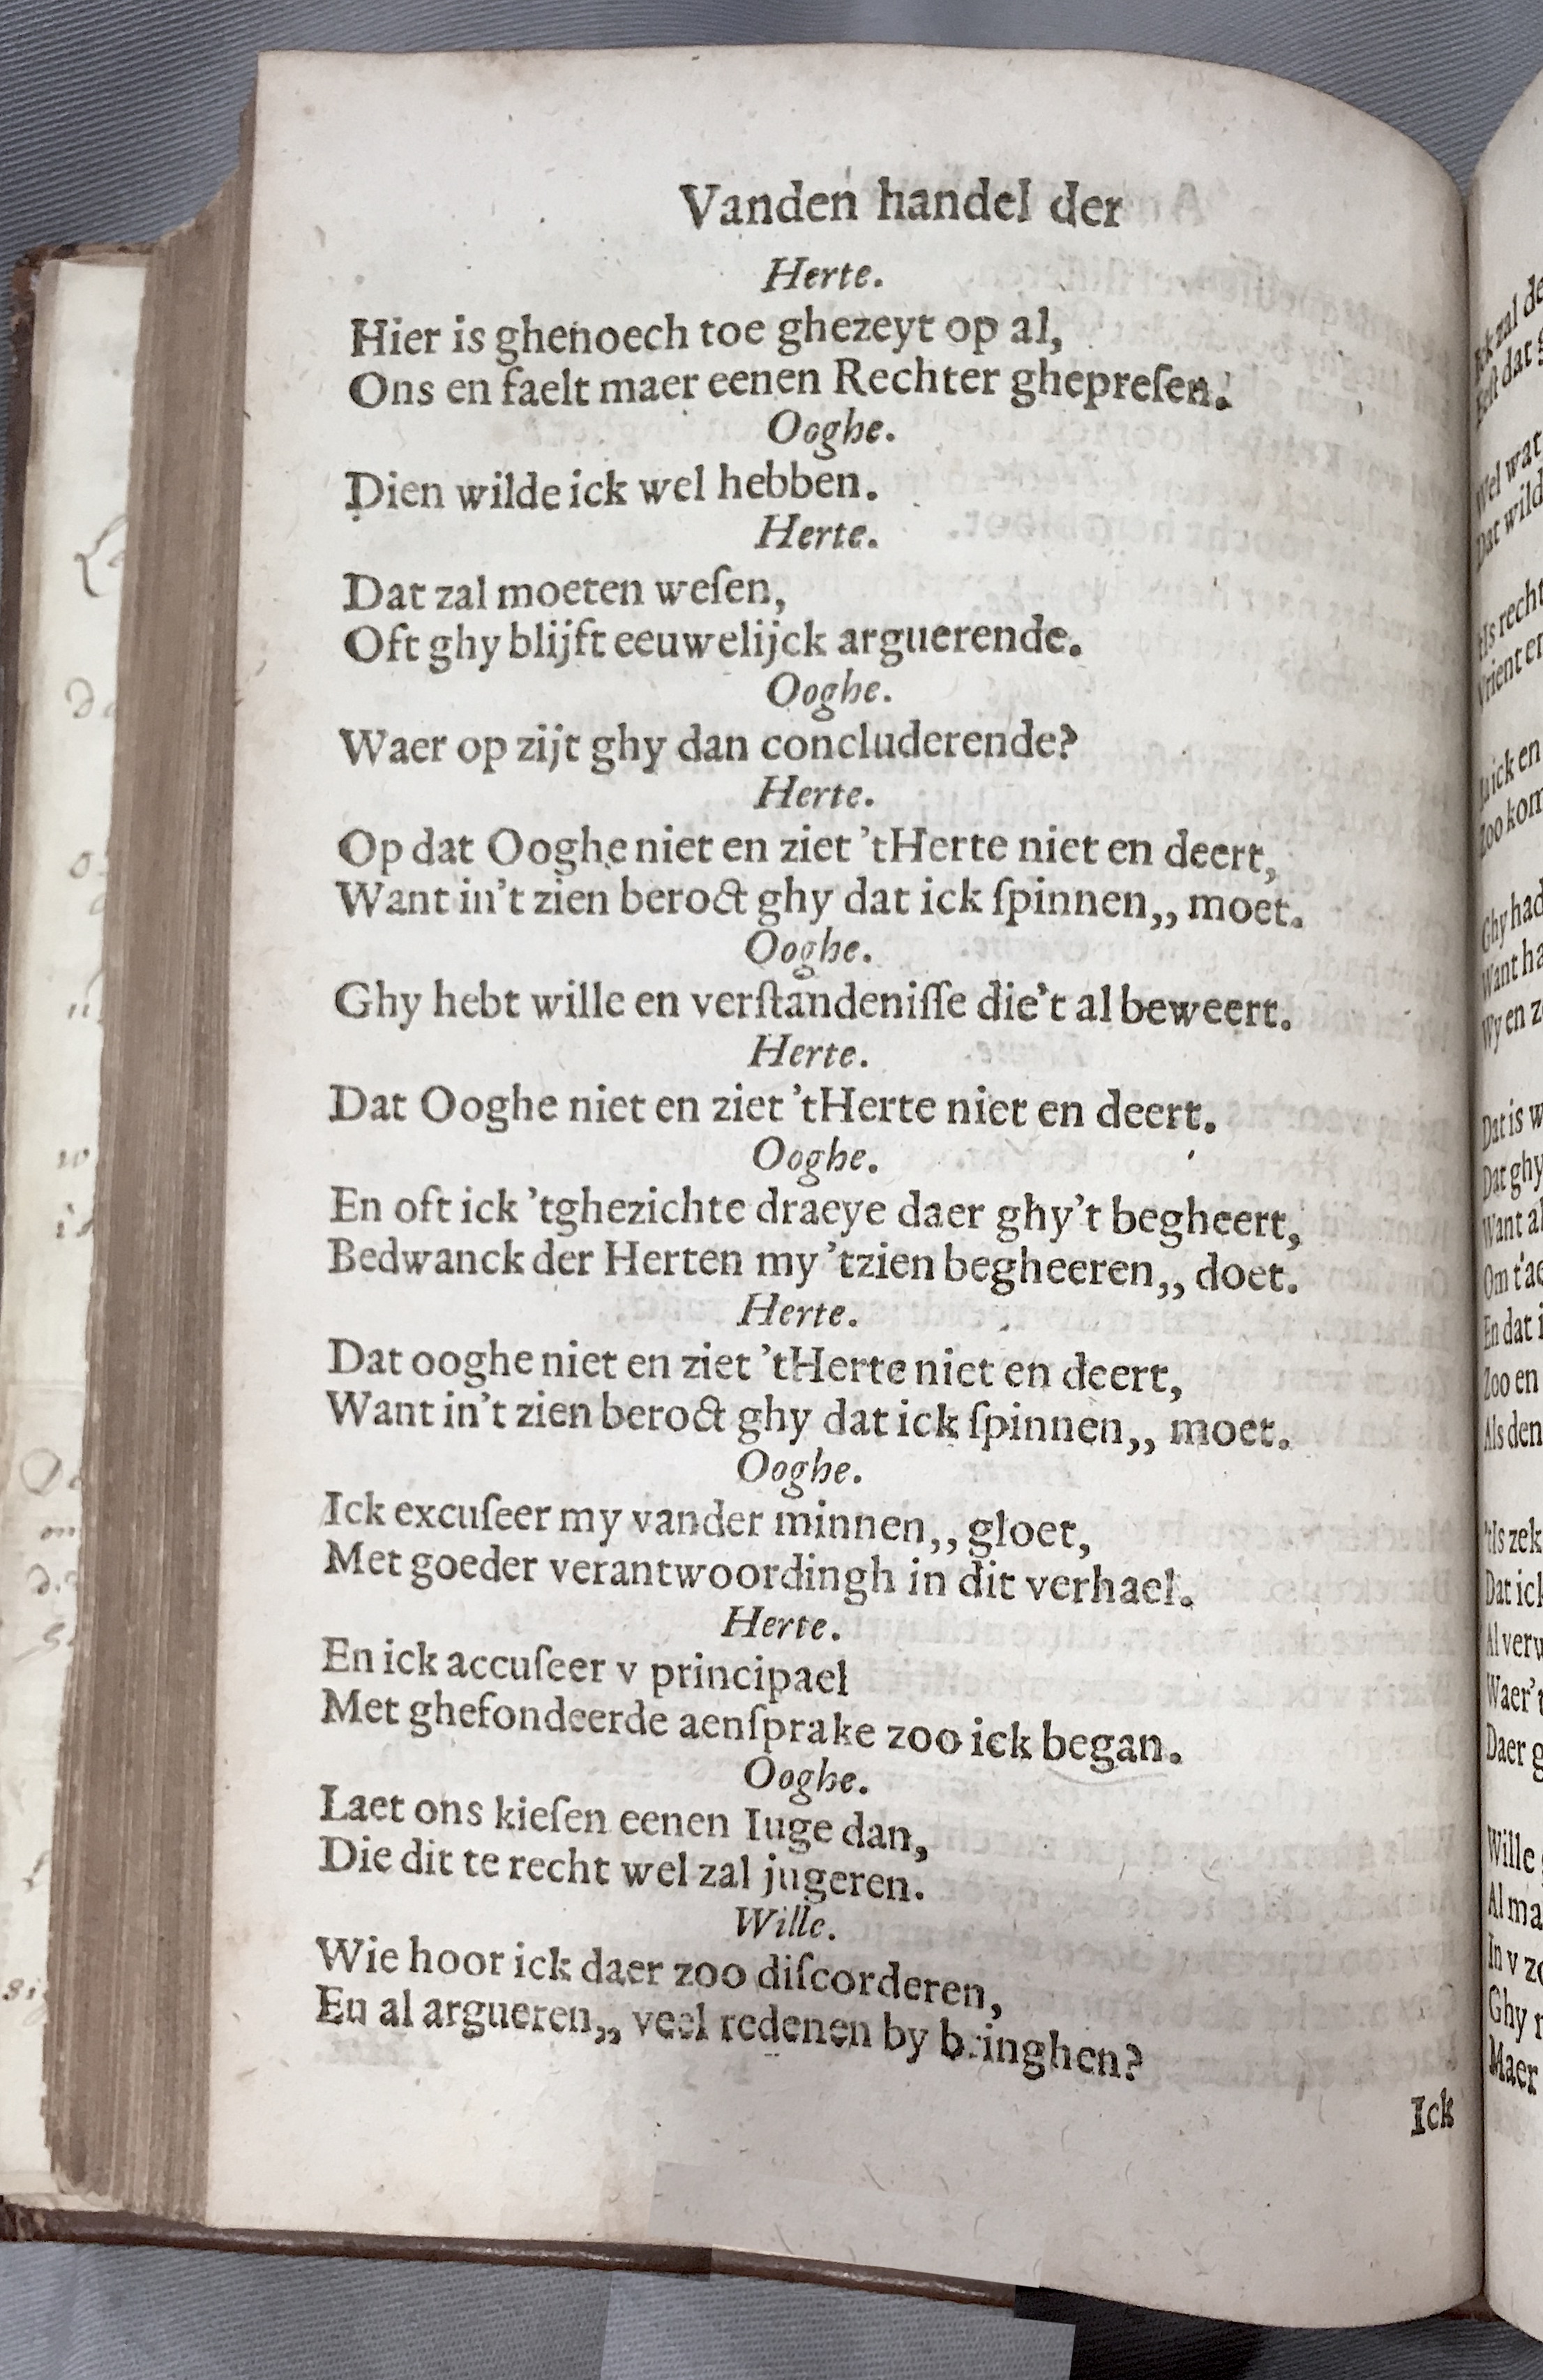 Vanden handel der
Herte.
Hier is ghenoech toe ghezeyt op al,
Ons en faelt maer eenen Rechter ghepreſen.
Ooghe.
Dien wilde ick wel hebben.
Herte.
Dat zal moeten weſen,
Oft ghy blijft eeuwelijck arguerende.
Ooghe.
Waer op zijt ghy dan concluderende?
Herte.
Op dat Ooghe niet en ziet 'tHerte niet en deert,
Want in't zien beroct ghy dat ick ſpinnen,, moet.
Ooghe.
Ghy hebt wille en verſtandeniſſe die't al beweert.
Herte.
Dat Ooghe niet en ziet 'tHerte niet en deert.
Ooghe.
En oft ick 'tghezichte draeye daer ghy't begheert,
Bedwanck der Herten my 'tzien begheeren,, doet.
Herte.
Dat ooghe niet en ziet 'tHerte niet en deert,
Want in't zien beroct ghy dat ick ſpinnen,, moet.
Ooghe.
Ick excuſeer my vander minnen,, gloet,
Met goeder verantwoordingh in dit verhael.
Herte.
En ick accuſeer v principael
Met ghefondeerde aenſprake zoo ick began.
Ooghe.
Laet ons kieſen eenen Iuge dan,
Die dit te recht wel zal jugeren.
Wille.
Wie hoor ick daer zoo diſcorderen,
En al argueren,, veel redenen by bringhen?
Ick